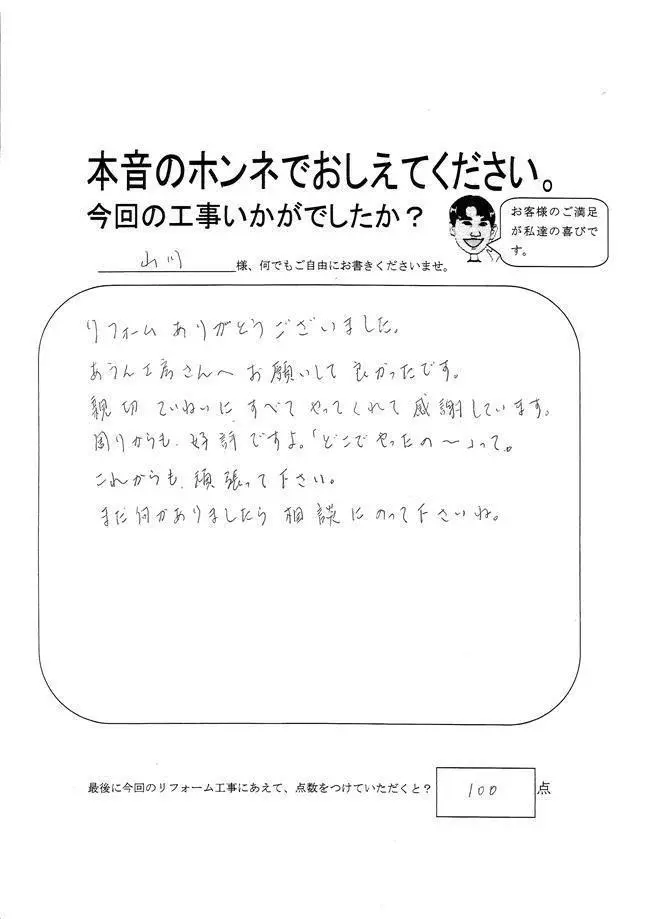 本音のホンネでおしえてください。
今回の工事いかがでしたか？
お客様のご満足
が私達の喜びで
す。
山川様、何でもご自由にお書きくださいませ。
リフォームありがとうございました。
あうん工房さんへお願いして良かったです。
親切ていねいにすべてやってくれて感謝しています。
周りからも、好評ですよ。「どこでやったの〜」って。
これからも、頑張って下さい。
また何かありましたら相談にのって下さいね。
最後に今回のリフォーム工事にあえて、点数をつけていただくと？ 100 点